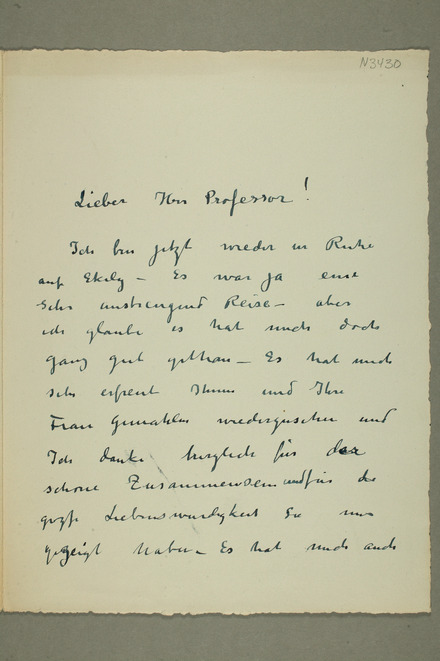 N3430
Lieber Herr Professor!
Ich bin jetzt wieder in Ruhe
auf Ekely – Es war ja eine
sehr anstrengend Reise – aber
ich glaube es hat mich doch
ganz gut gethan – Es hat mich
sehr erfreut Ihnen und Ihre
Frau Gemahlin wiederzusehen und
Ich danke herzlich für das
schöne Zusammensein und für die
große Liebenswurdigkeit Sie mir
gezeigt haben – Es hat mich auch